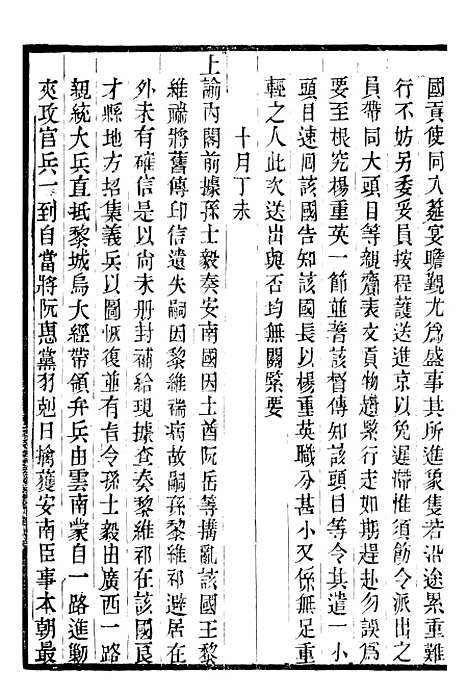 國貢使同入筵宴瞻觀尤爲盛事其所進象隻若沿途累重難
行不妨另委妥員按程護送進京以免遲滯惟須飭令派出之
員帶同大頭目等親齎表文貢物趲緊行走如期趕赴勿誤爲
要至根究楊重英一節並著該督傳知該頭目等令其遣一小
頭目速囘該國告知該國長以楊重英職分甚小又係無足重
輕之人此次送出與否均無關緊要
十月丁未
上諭內閣前據孫士毅奏安南國因土酋阮岳等搆亂該國王黎
維褍將舊傳印信遺失嗣因黎維褍病故嗣孫黎維祁避居在
外未有確信是以尚未册封補給現據查奏黎維祁在該國良
才縣地方招集義兵以圖恢復並有旨令孫士毅由廣西一路
親統大兵直抵黎城烏大經帶領弁兵由雲南蒙自一路進勦
夾攻官兵一到自當將阮惠黨羽剋日擒獲安南臣事本朝最